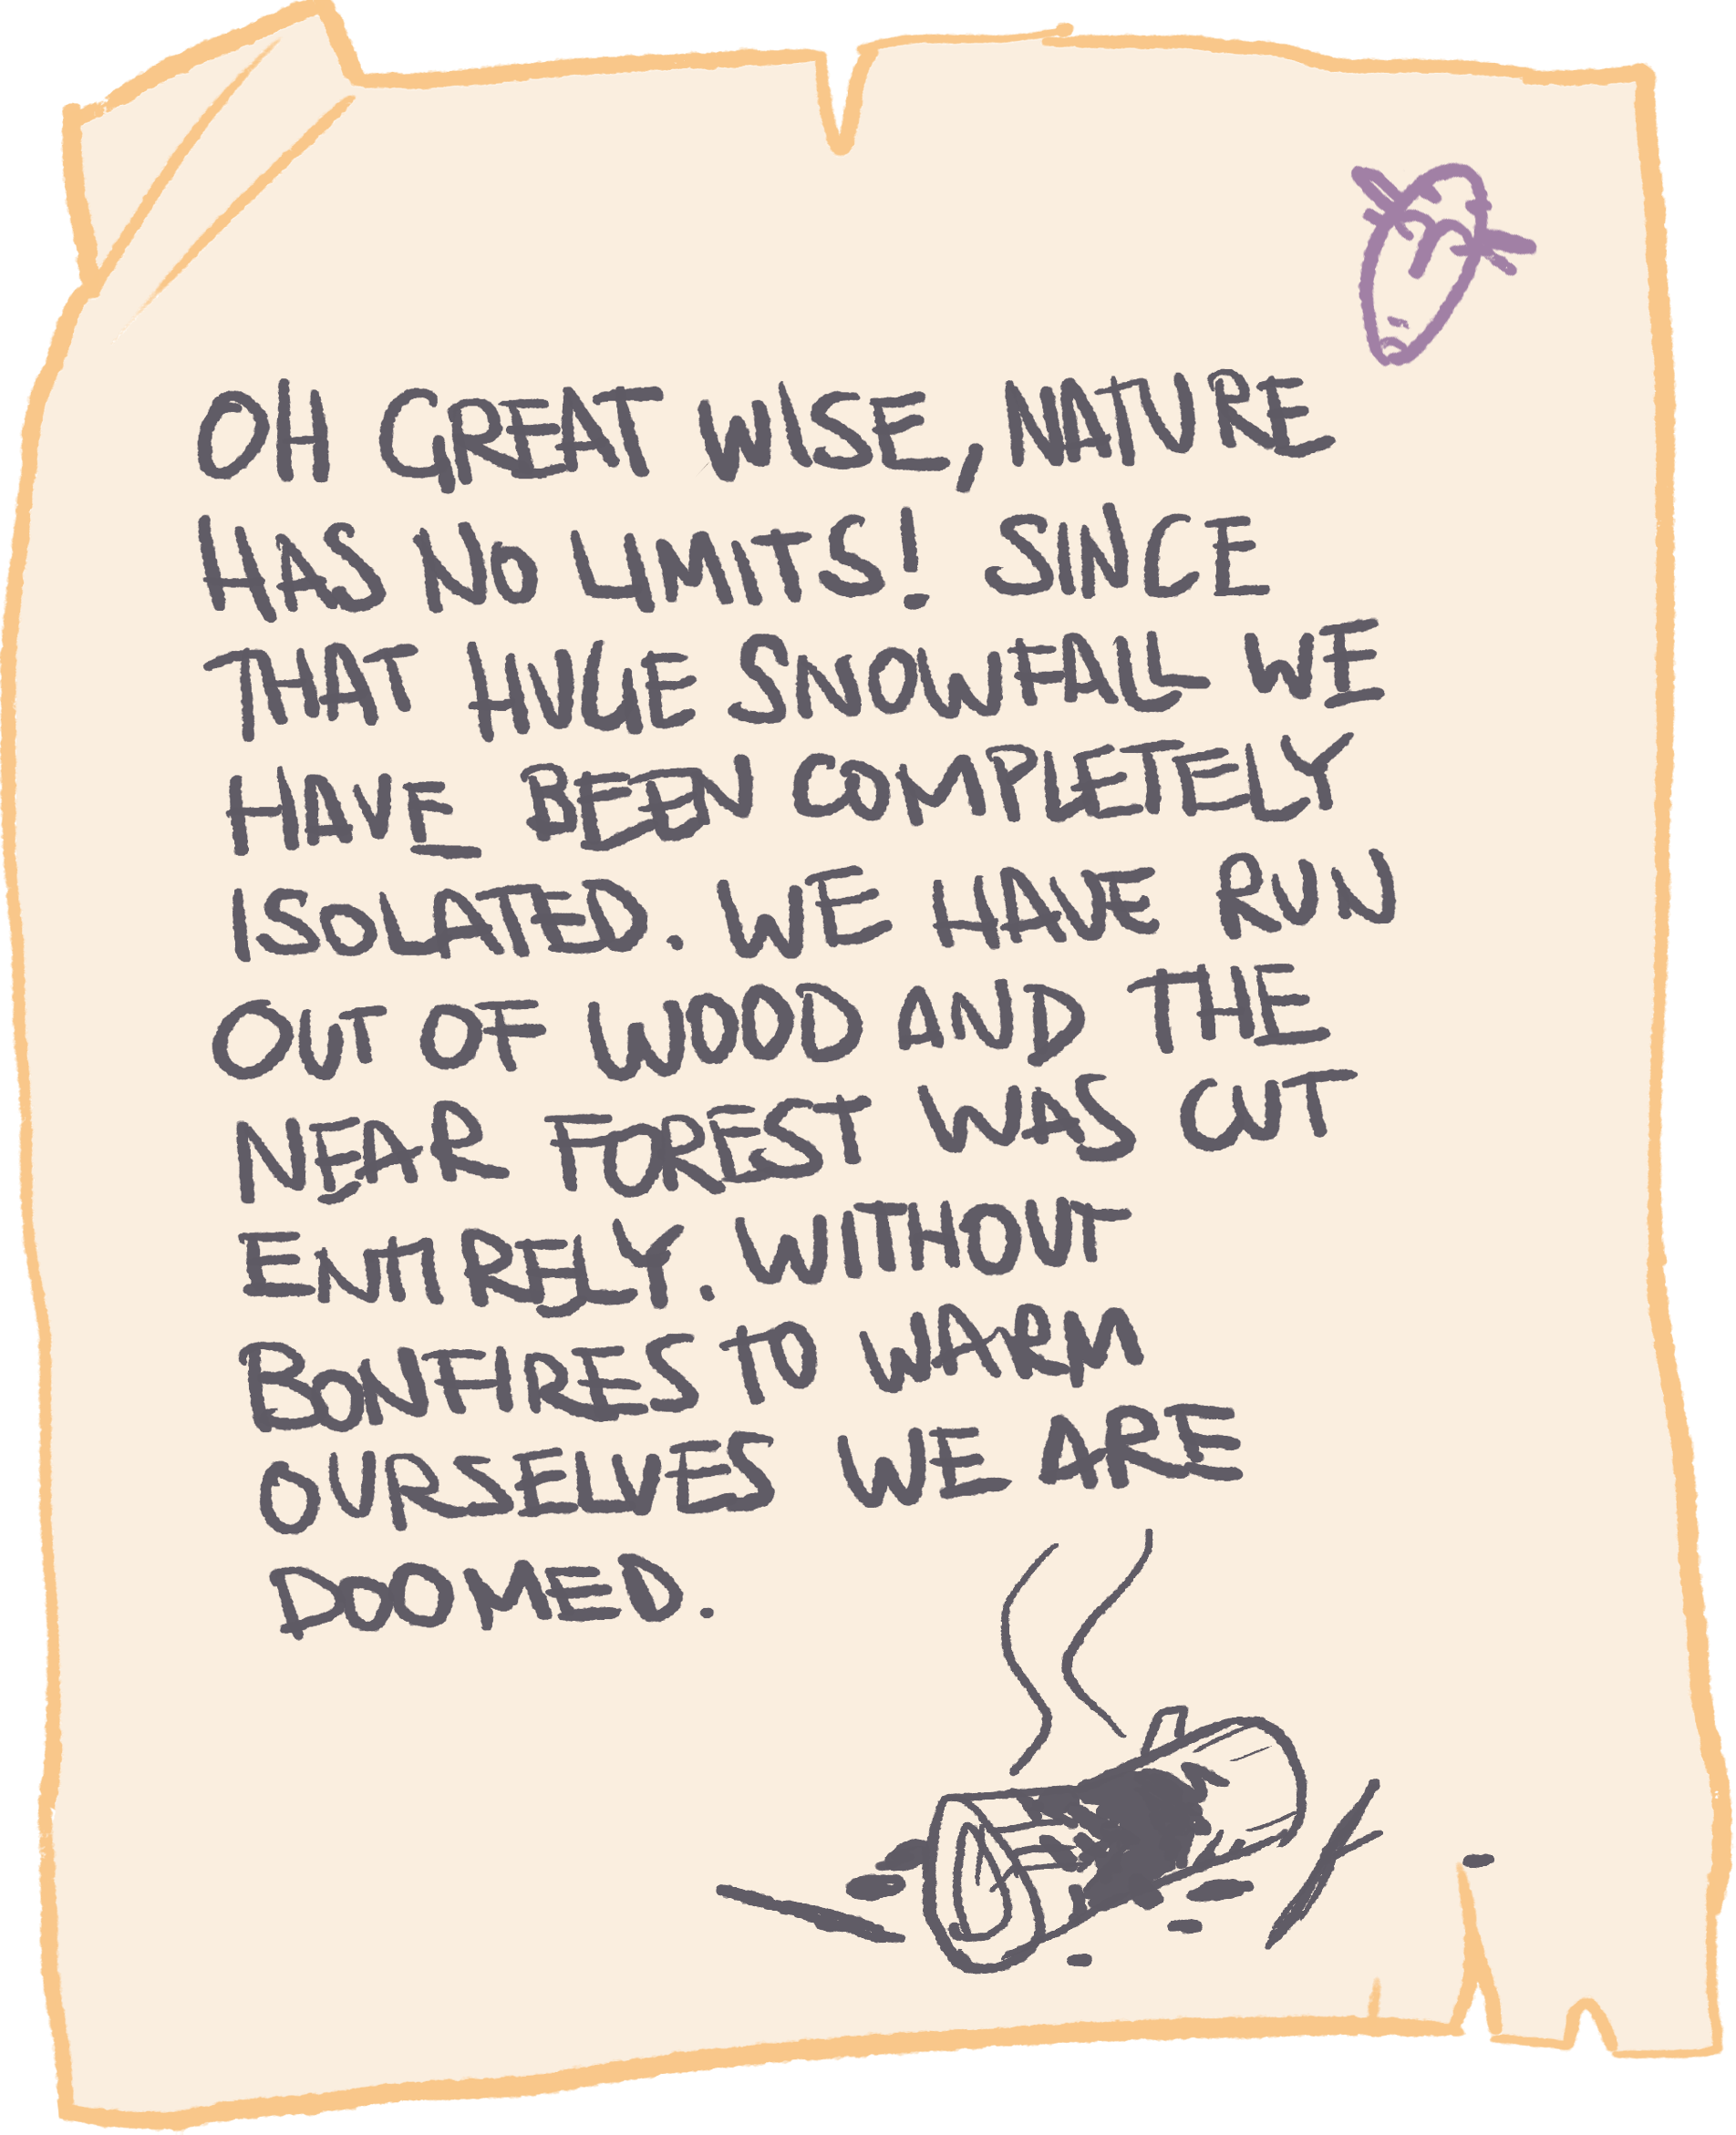 OH GREAT WISE, NATURE
HAS NO LIMITS! SINCE
THAT HUGE SNOWFALL WE
HAVE BEEN COMPLETELY
ISOLATED. WE HAVE RUN
OUT OF WOOD AND THE
NEAR FOREST WAS CUT
ENTIRELY. WITHOUT
BONFIRES TO WARM
OURSELVES WE ARE
DOOMED.